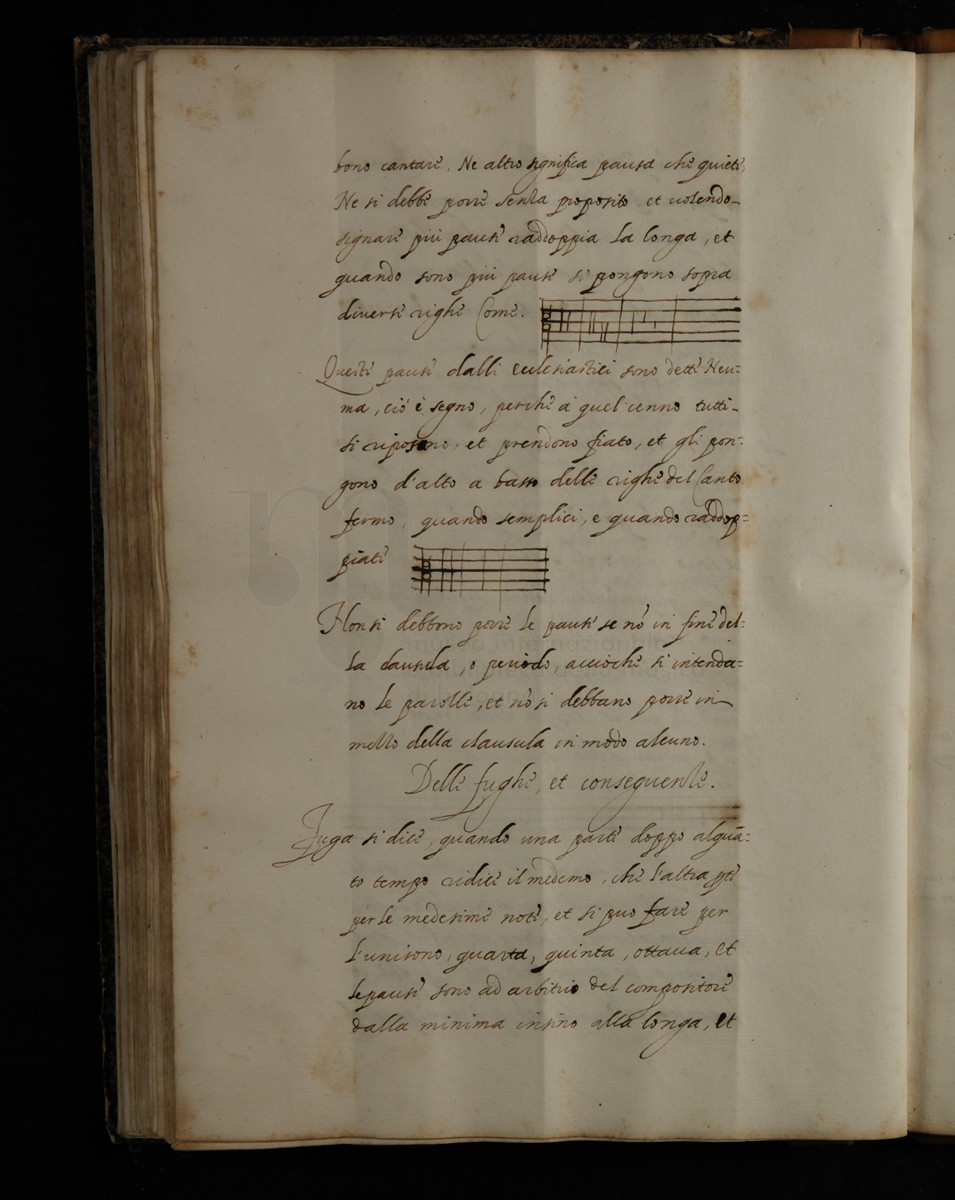 bono cantare. Ne altro significa pausa che quiete,
Ne si debbe porre senza proposito et uolendo-
signare più pause raddoppia la longa, et
quando sono più pause si pongono sopra
diverse righe Come.
Queste pause dalli ecclesiastici sono dette Neu=
ma, ciò è segno, perche a quel cenno tutti-
si riposano, et prendono fiato, et gli pon=
gono d'alto a basso delle righe del Canto
fermo, quando semplici, e quando raddop=
piate
Non si debbono porre le pause se nō in fine del=
la clausula, o periodo, accioche si intenda=
no le parolle, et nō si debbano porre in
mezzo della clausula in modo alcuno.
Delle fughe, et conseguenze.
Fuga si dice, quando una parte doppo alquā=
to tempo ridice il medemo, che l'altra pte
per le medesime note, et si puo fare per
l'unisono, quarta, quinta, ottaua, et
le pause sono ad arbitrio del compositore
dalla minima insino alla longa, et